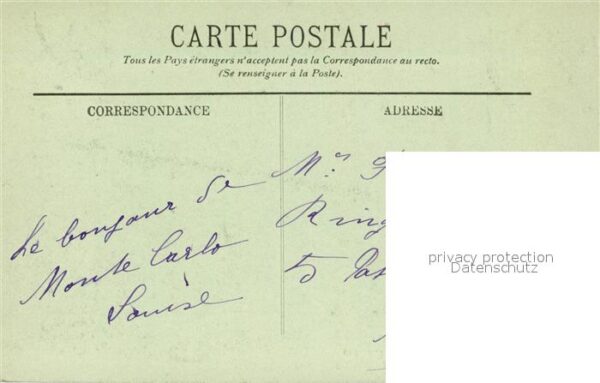 CARTE POSTALE
Tous les Pays étrangers n'acceptent pas la Correspondance au recto.
(Se renseigner à la Poste).
CORRESPONDANCE
ADRESSE
Le bonjour de
Monte Carlo
Louise
Mr
Ring
5
privacy protection
Datenschutz